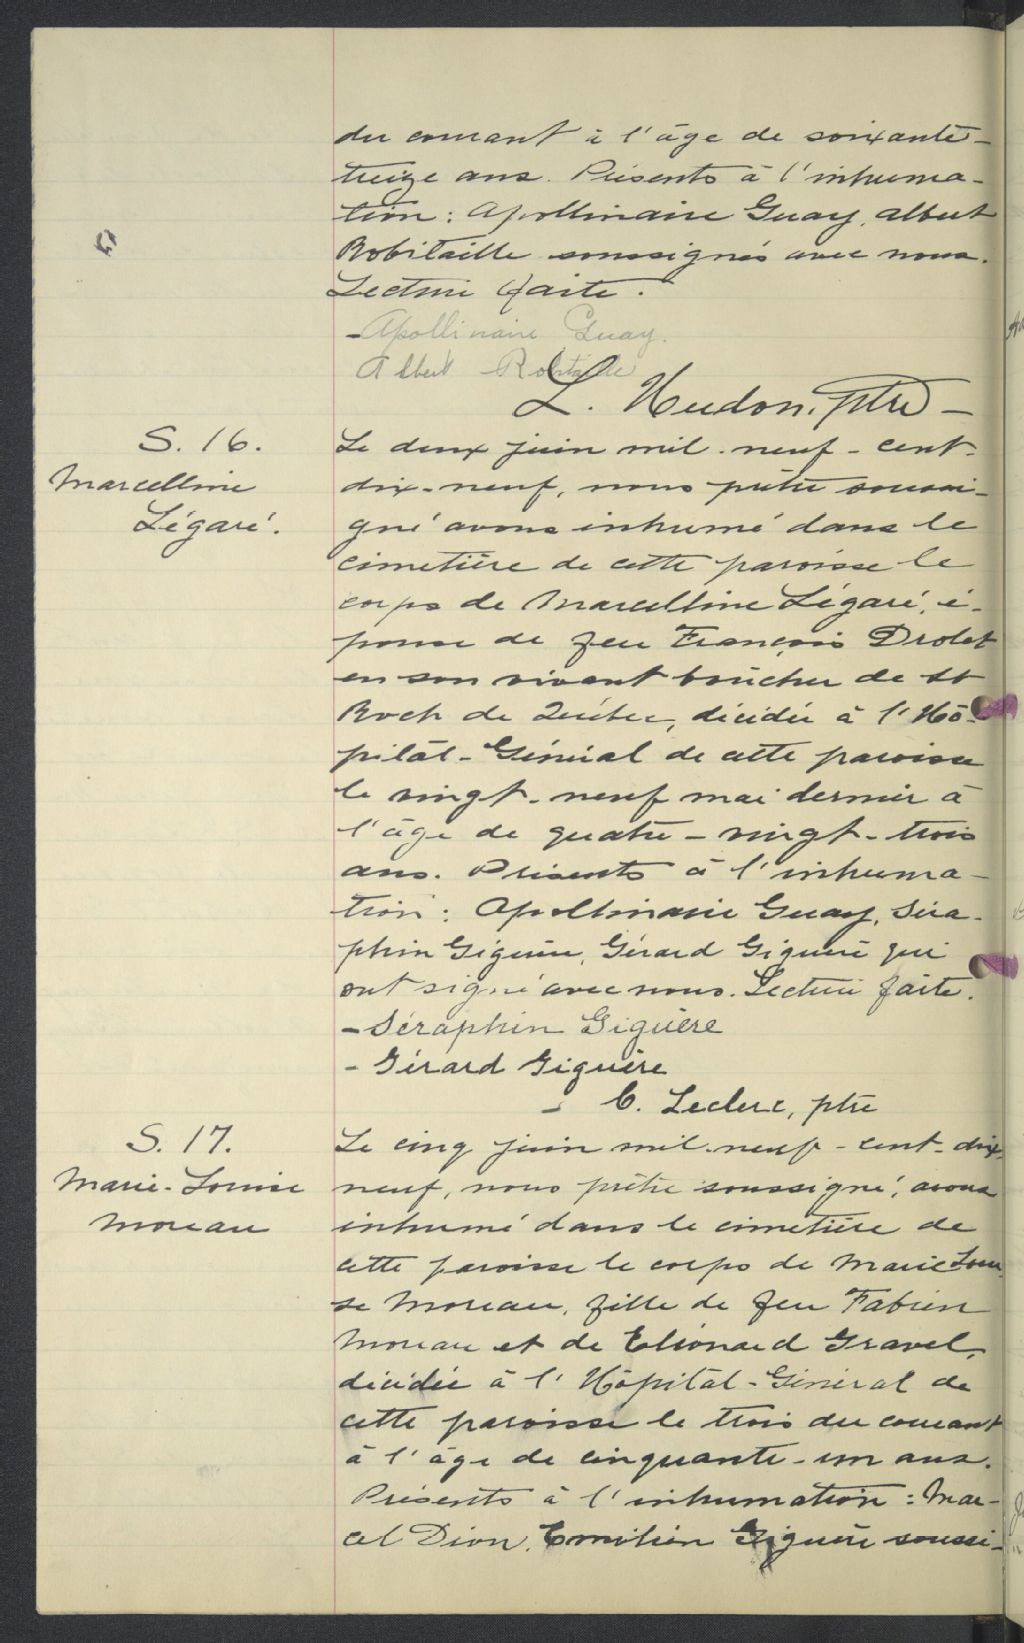 du courant à l'âge de soixante-
treize ans. Présents à l'inhuma-
tion: Apollinaire Guay, Albert
Robitaille soussignés avec nous.
Lecture faite.
- Apollinaire Guay.
Albert Robitaille
L. Hudon, ptre -
S. 16.
Marcelline
Légaré.
Le deux juin mil-neuf-cent-
dix-neuf, nous prêtre soussi-
gné avons inhumé dans le
cimetière de cette paroisse le
corps de Marcelline Légaré, é-
pouse de feu François Drolet
en son vivant boucher de St
Roch de Québec, décédée à l'Hô-
pital-Général de cette paroisse
le vingt-neuf mai dernier à
l'âge de quatre-vingt-trois
ans. Présents à l'inhuma-
tion: Apollinaire Guay, Séra-
phin Giguère, Gérard Giguère qui
ont signé avec nous. Lecture faite.
- Séraphin Giguère
- Gérard Giguère
- C. Leclerc, ptre
S. 17.
Marie-Louise
Moreau
Le cinq juin mil-neuf-cent-dix-
neuf, nous prêtre soussigné, avons
inhumé dans le cimetière de
cette paroisse le corps de Marie Loui-
se Moreau, fille de feu Fabien
Moreau et de Eléonard Gravel,
décédée à l'Hôpital-Général de
cette paroisse le trois du courant
à l'âge de cinquante-un ans.
Présents à l'inhumation: Mar-
cel Dion, Emilien Giguère soussi-